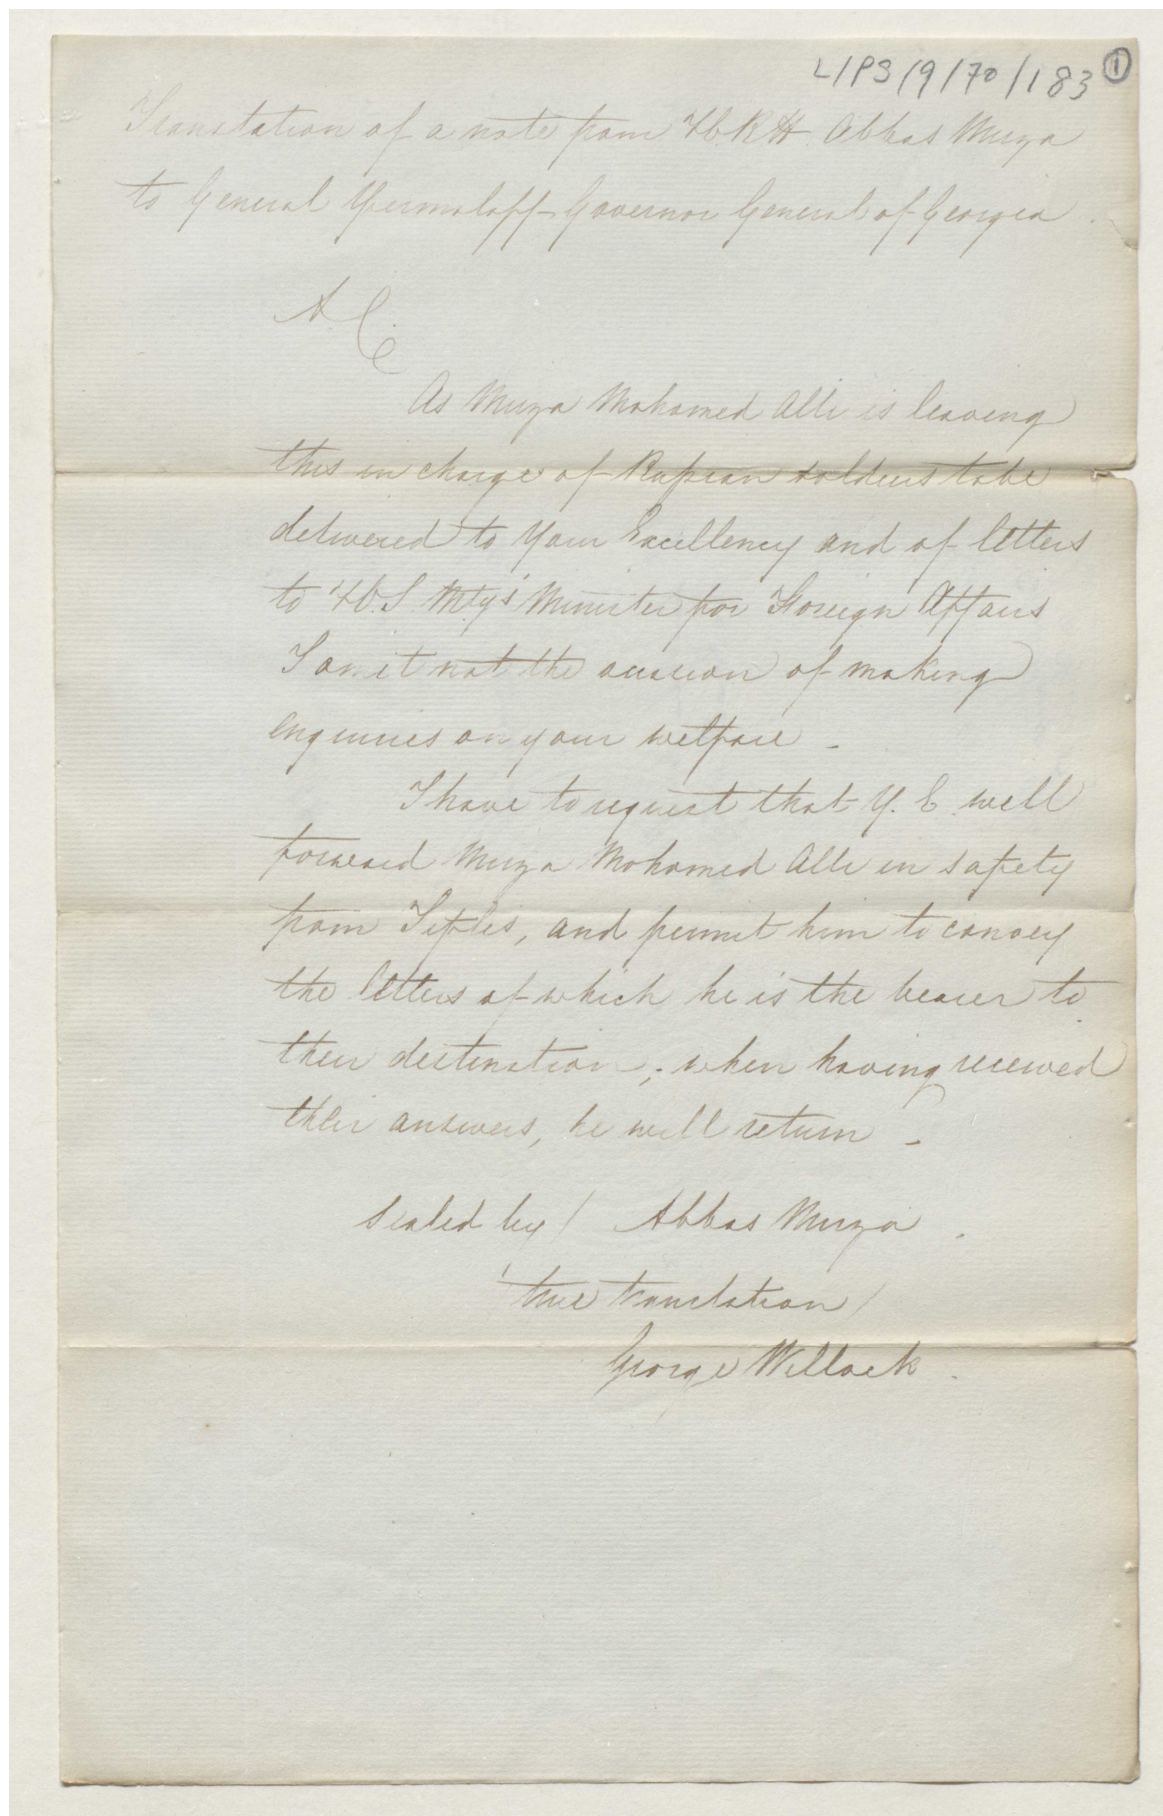 L/PS/9/70/183 1
Translation of a note from H.R.H. Abbas Mirza
to General Yermoloff Governor General of Georgia.
A.C.
As Mirza Mahomed Alli is leaving
this in charge of Russian soldiers to be
delivered to Your Excellency and of letters
to H.I. Mty's Minister for Foreign Affairs
I omit not the occasion of making
enquiries on your welfare -
I have to request that Y. E. will
forward Mirza Mohomed Alli in safety
from Tiflis, and permit him to convey
the letters of which he is the bearer to
their destination; when having received
their answers, he will return -
Sealed by / Abbas Mirza.
true translation /
George Willock.